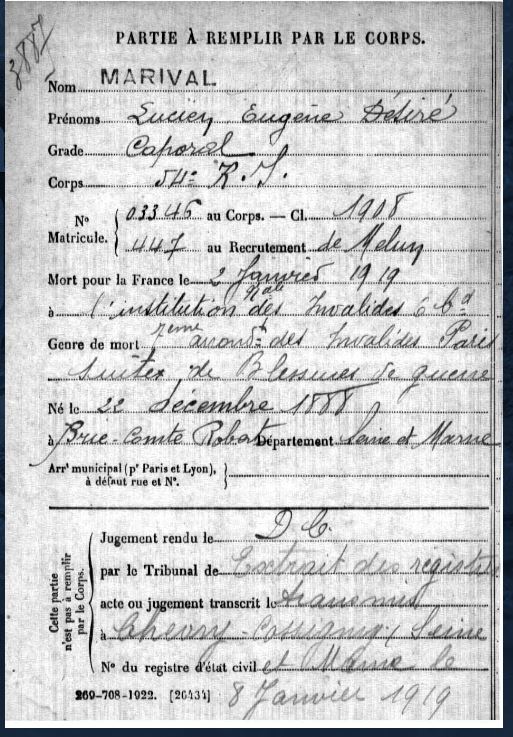 3887
PARTIE À REMPLIR PAR LE CORPS.
Nom MARIVAL
Prénoms Lucien Eugène Désiré
Grade Caporal
Corps 54e R. I.
N° Matricule. { 03346 au Corps. — Cl. 1908
447 au Recrutement de Melun
Mort pour la France le 2 Janvier 1919
à l'institution nale des Invalides 6 bd
Genre de mort 7eme arrondt des Invalides Paris
suites de Blessures de guerre
Né le 22 décembre 1888
à Brie-Comte Robert Département Seine et Marne
Arrt municipal (pr Paris et Lyon), à défaut rue et N°. }
Cette partie n'est pas à remplir par le Corps.
Jugement rendu le D C.
par le Tribunal de Extrait des registres
acte ou jugement transcrit le transmis
à Chevry-Cossigny, Seine
N° du registre d'état civil et Marne le
269-708-1922. [26434] 8 Janvier 1919